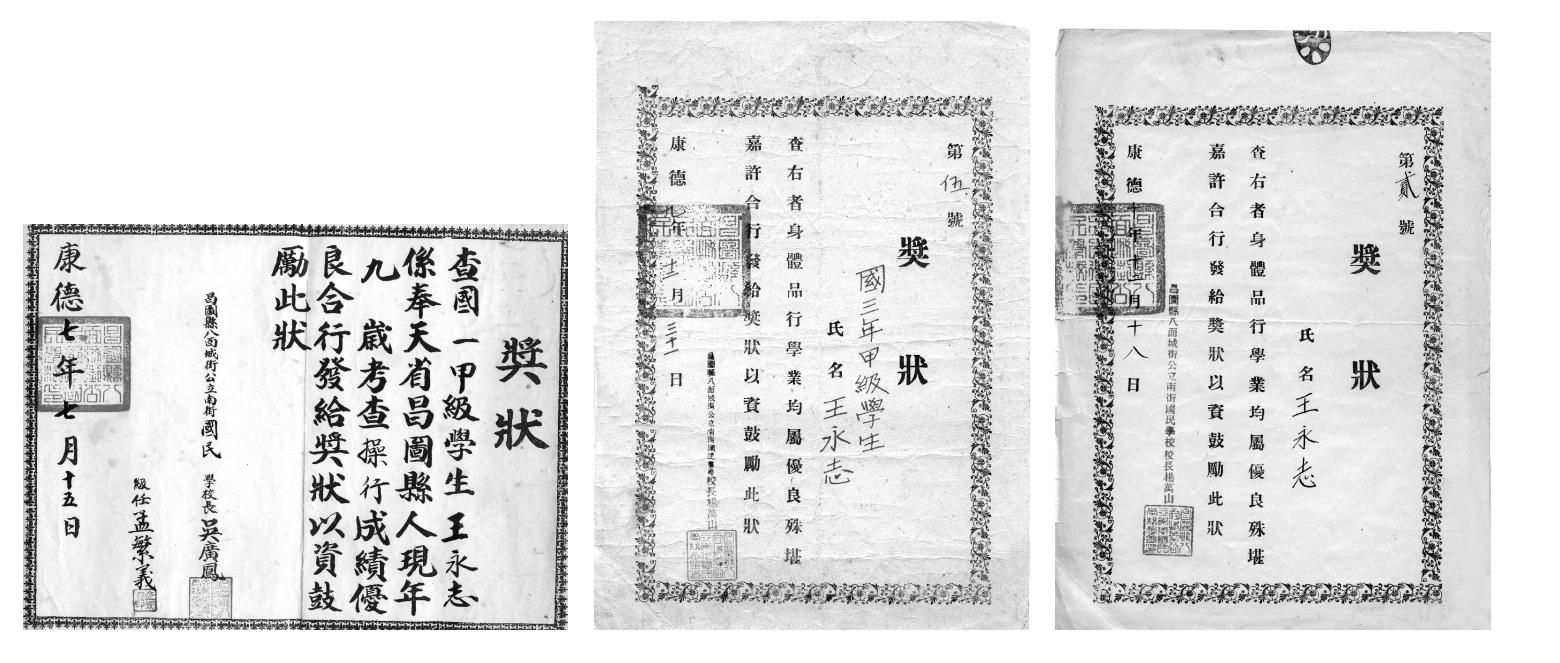 獎狀
查國一甲級學生王永志
係奉天省昌圖縣人現年
九歲考查操行成績優
良合行發給獎狀以資鼓
勵此狀
昌圖縣八面城街公立南街國民學校長吳廣鳳
級任孟繁義
康德七年七月十五日
第伍號
獎狀
國三年甲級學生
氏名王永志
查右者身體品行學業均屬優良殊堪
嘉許合行發給獎狀以資鼓勵此狀
校長楊萬山
康德九年十二月三十一日
第貳號
獎狀
氏名王永志
查右者身體品行學業均屬優良殊堪
嘉許合行發給獎狀以資鼓勵此狀
昌圖縣八面城街公立南街國民學校校長楊萬山
康德十年十二月十八日